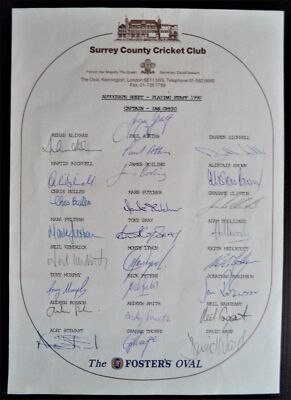 Surrey County Cricket Club
Patron: Her Majesty The Queen Secretary: David Seward
The Oval, Kennington, London SE11 5SS. Telephone 01-582 6660
Fax 01-735 7769
AUTOGRAPH SHEET - PLAYING STAFF 1990
CAPTAIN - IAN GREIG
REHAN ALIKHAN PAUL ATKINS DARREN BICKNELL
MARTIN BICKNELL JAMES BOILING ALISTAIR BROWN
CHRIS BULLEN MARK BUTCHER GRAHAME CLINTON
MARK FELTHAM TONY GRAY ADAM HOLLIOAKE
NEIL KENDRICK MONTE LYNCH KEITH MEDLYCOTT
TONY MURPHY RICK PETERS JONATHAN ROBINSON
ANDREW ROBSON ANDREW SMITH NEIL SARGEANT
ALEC STEWART GRAHAM THORPE DAVID WARD
The FOSTER'S OVAL